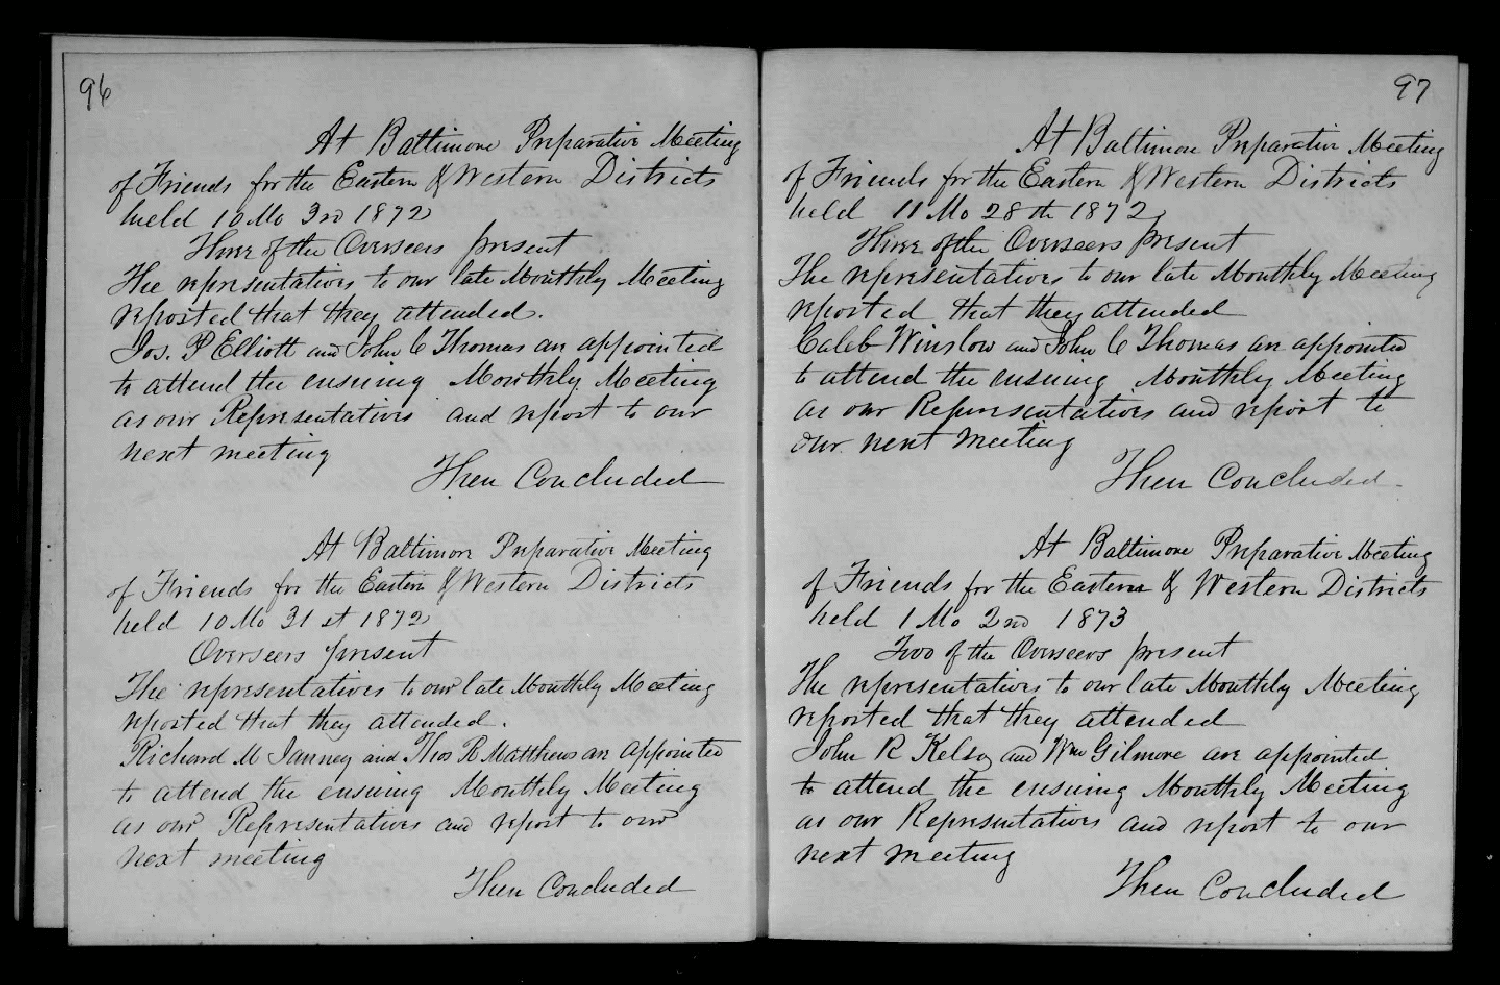 96
At Baltimore Preparative Meeting
of Friends for the Eastern & Western Districts
held 10 Mo 3rd 1872
Three of the Overseers present
The representatives to our late Monthly Meeting
reposted that they attended.
Jos. P Elliott and John C Thomas are appointed
to attend the ensuing Monthly Meeting
as our Representatives and report to our
next meeting
Then Concluded
At Baltimore Preparative Meeting
of Friends for the Eastern & Western Districts
held 10 Mo 31st 1872
Overseers present
The representatives to our late Monthly Meeting
reposted that they attended.
Richard M Janney and Thos R Matthews are appointed
to attend the ensuing Monthly Meeting
as our Representatives and report to our
next meeting
Then Concluded
97
At Baltimore Preparative Meeting
of Friends for the Eastern & Western Districts
held 11 Mo 28th 1872
Three of the Overseers present
The representatives to our late Monthly Meeting
reposted that they attended
Caleb Winslow and John C Thomas are appointed
to attend the ensuing Monthly Meeting
as our Representatives and report to
our next meeting
Then Concluded.
At Baltimore Preparative Meeting
of Friends for the Eastern & Western Districts
held 1 Mo 2nd 1873
Two of the Overseers present
The representatives to our late Monthly Meeting
reposted that they attended
John R Kelso and Wm Gilmore are appointed
to attend the ensuing Monthly Meeting
as our Representatives and report to our
next meeting
Then Concluded